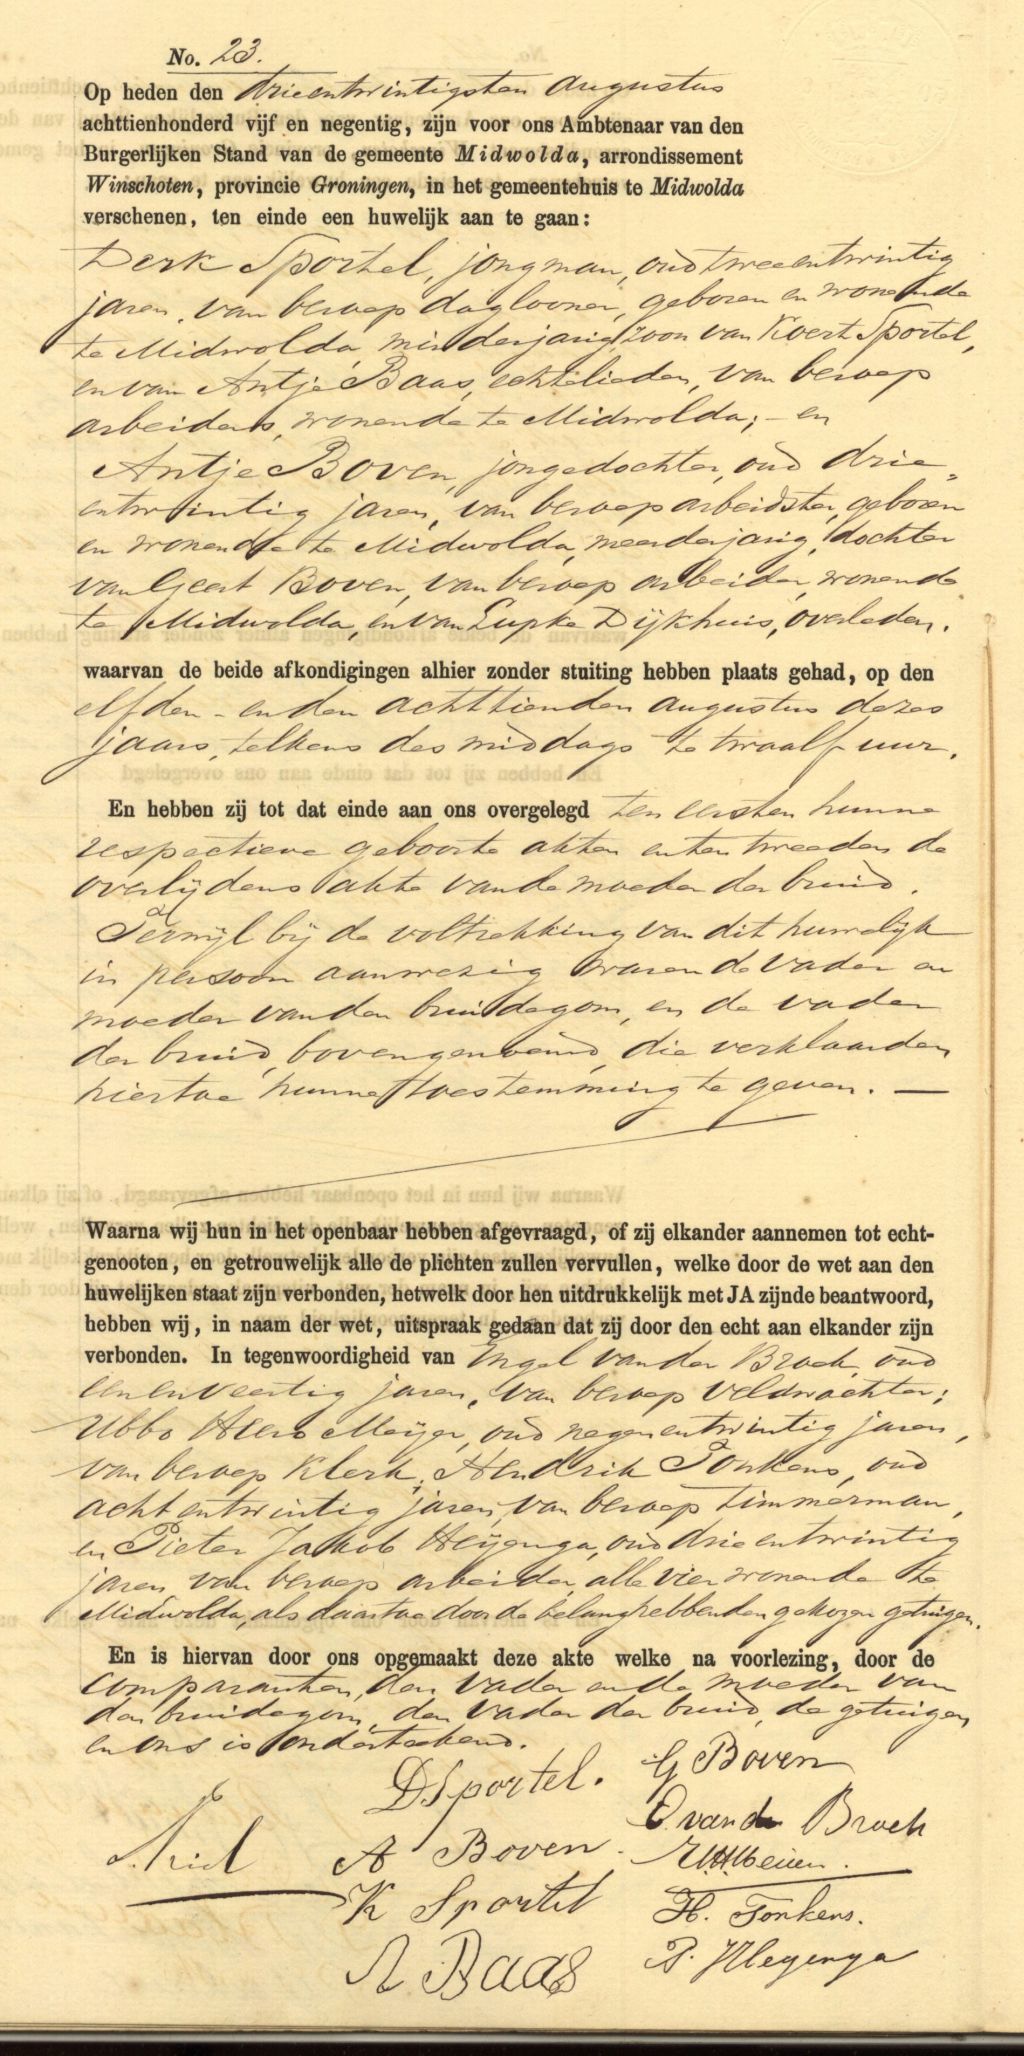 No. 23.
Op heden den drieentwintigsten Augustus
achttienhonderd vijf en negentig, zijn voor ons Ambtenaar van den
Burgerlijken Stand van de gemeente Midwolda, arrondissement
Winschoten, provincie Groningen, in het gemeentehuis te Midwolda
verschenen, ten einde een huwelijk aan te gaan:
Derk Sportel, jongman, oud tweeentwintig
jaren, van beroep daglooner, geboren en wonende
te Midwolda, minderjarig, zoon van Koert Sportel,
en van Antje Baas, echtelieden, van beroep
arbeiders, wonende te Midwolda; – en
Antje Boven, jongedochter, oud drie-
entwintig jaren, van beroep arbeidster, geboren
en wonende te Midwolda, meerderjarig, dochter
van Geert Boven, van beroep arbeider, wonende
te Midwolda, en van Lupke Dijkhuis, overleden.
waarvan de beide afkondigingen alhier zonder stuiting hebben plaats gehad, op den
elfden - en den achttienden Augustus dezes
jaars, telkens des middags te twaalf uur.
En hebben zij tot dat einde aan ons overgelegd ten eersten hunne
respectieve geboorte akten en ten tweeden de
overlijdens akte van de moeder der bruid.
Terwijl bij de voltrekking van dit huwelijk
in persoon aanwezig waren de vader en
moeder van den bruidegom, en de vader
der bruid, bovengenoemd, die verklaarden
hiertoe hunne toestemming te geven. —
Waarna wij hun in het openbaar hebben afgevraagd, of zij elkander aannemen tot echt-
genooten, en getrouwelijk alle de plichten zullen vervullen, welke door de wet aan den
huwelijken staat zijn verbonden, hetwelk door hen uitdrukkelijk met JA zijnde beantwoord,
hebben wij, in naam der wet, uitspraak gedaan dat zij door den echt aan elkander zijn
verbonden. In tegenwoordigheid van Engel van der Broek, oud
eenenveertig jaren, van beroep veldwachter;
Ubbo Heero Meijer, oud negenentwintig jaren,
van beroep klerk, Hendrik Tonkens, oud
achtentwintig jaren, van beroep timmerman,
en Pieter Jakob Heijenga, oud drieentwintig
jaren, van beroep arbeider, alle vier wonende te
Midwolda, als daartoe door de belanghebbenden gekozen getuigen.
En is hiervan door ons opgemaakt deze akte welke na voorlezing, door de
comparanten, den vader en de moeder van
den bruidegom, den vader der bruid, de getuigen
en ons is onderteekend.
D Sportel. G Boven
E. van der Broek
A Boven.
K Sportel H. Tonkens.
A Baas P. J Hegenga